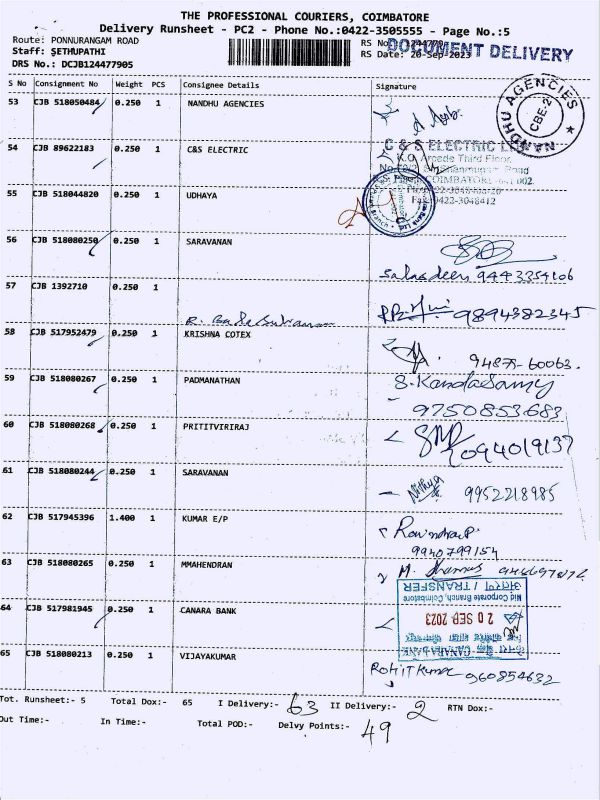 THE PROFESSIONAL COURIERS, COIMBATORE
Delivery Runsheet - PC2 - Phone No.:0422-3505555 - Page No.:5
Route: PONNURANGAM ROAD
Staff: SETHUPATHI
DRS No.: DCJB124477905
RS No
RS Date: 20-Sep-2023
DOCUMENT DELIVERY
S No Consignment No Weight PCS Consignee Details Signature
53 CJB 518050484 0.250 1 NANDHU AGENCIES
NANDHU AGENCIES CBE-2
54 CJB 89622183 0.250 1 C&S ELECTRIC
C & S ELECTRIC
Third Floor,
Road
COIMBATORE-641 002
0422-3048412
55 CJB 518044820 0.250 1 UDHAYA
56 CJB 518080250 0.250 1 SARAVANAN
9443354106
57 CJB 1392710 0.250 1
9894382345
58 CJB 517952479 0.250 1 KRISHNA COTEX
94875-60063.
59 CJB 518080267 0.250 1 PADMANATHAN
S. Kandasamy
9750853683
60 CJB 518080268 0.250 1 PRITITVIRIRAJ
61 CJB 518080244 0.250 1 SARAVANAN
Nithya 9952218985
62 CJB 517945396 1.400 1 KUMAR E/P
Ravindran P
9940799154
63 CJB 518080265 0.250 1 MMAHENDRAN
64 CJB 517981945 0.250 1 CANARA BANK
अंतरण / TRANSFER
Mid Corporate Branch, Coimbatore
20 SEP 2023
CANARA BANK
65 CJB 518080213 0.250 1 VIJAYAKUMAR
Rohit Kumar 960854632
Tot. Runsheet:- 5 Total Dox:- 65 I Delivery:- 63 II Delivery:- 2 RTN Dox:-
Out Time:- In Time:- Total POD:- Delvy Points:- 49